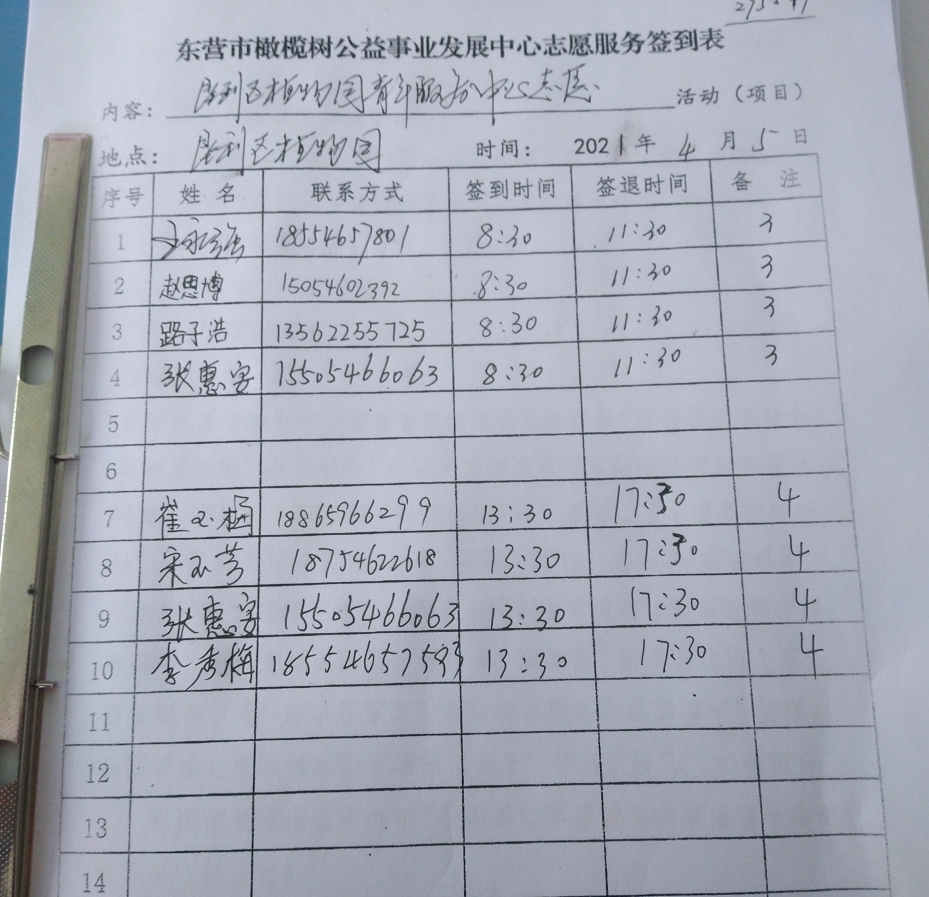 东营市橄榄树公益事业发展中心志愿服务签到表
内容: 胜利区植物园青年服务中心志愿 活动(项目)
地点: 胜利区植物园 时间: 2021年 4 月 5 日
序号 姓名 联系方式 签到时间 签退时间 备注
1 18554657801 8:30 11:30 3
2 赵思博 15054602392 8:30 11:30 3
3 路子浩 13562255725 8:30 11:30 3
4 张惠安 15505466063 8:30 11:30 3
5
6
7 崔玉梅 18865966299 13:30 17:30 4
8 宋玉芳 18754622618 13:30 17:30 4
9 张惠安 15505466063 13:30 17:30 4
10 李秀梅 18554657593 13:30 17:30 4
11
12
13
14